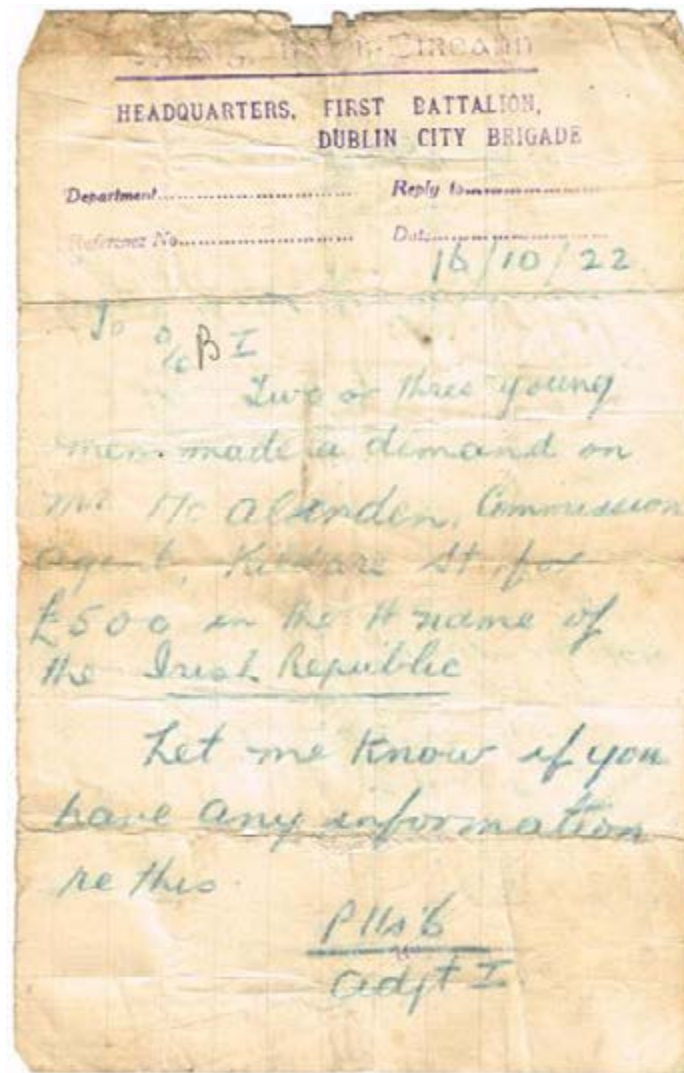 HEADQUARTERS, FIRST BATTALION,
DUBLIN CITY BRIGADE
Department.............................. Reply to..............................
Reference No.............................. Date..............................
16/10/22
To
O/C B I
Two or three young
men made a demand on
Mr. Commission
agent, Kildare St. for
£500 in the name of
the Irish Republic
Let me know if you
have any information
re this.
Adjt I